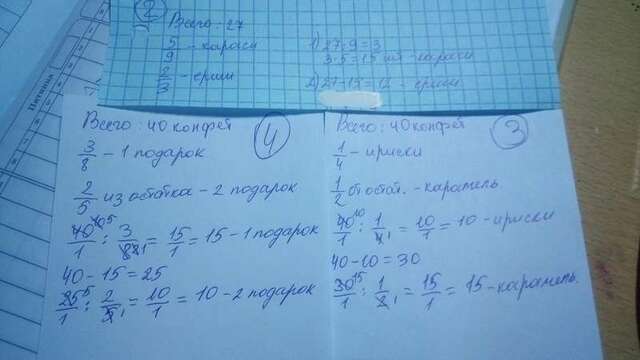 2
Всего: 27
5/9 - караси
2/3 - ерши
1) 27:9=3
3·5=15 шт - караси
2) 27-15=12 - ерши
Пятница
4
Всего: 40 конфет
3/8 - 1 подарок
2/5 из остатка - 2 подарок
40/1 : 3/8 = 15/1 = 15 - 1 подарок
40-15=25
25/1 : 2/5 = 10/1 = 10 - 2 подарок
3
Всего: 40 конфет
1/4 - ириски
1/2 от остат. - карамель
40/1 : 1/4 = 10/1 = 10 - ириски
40-10=30
30/1 : 1/2 = 15/1 = 15 - карамель.